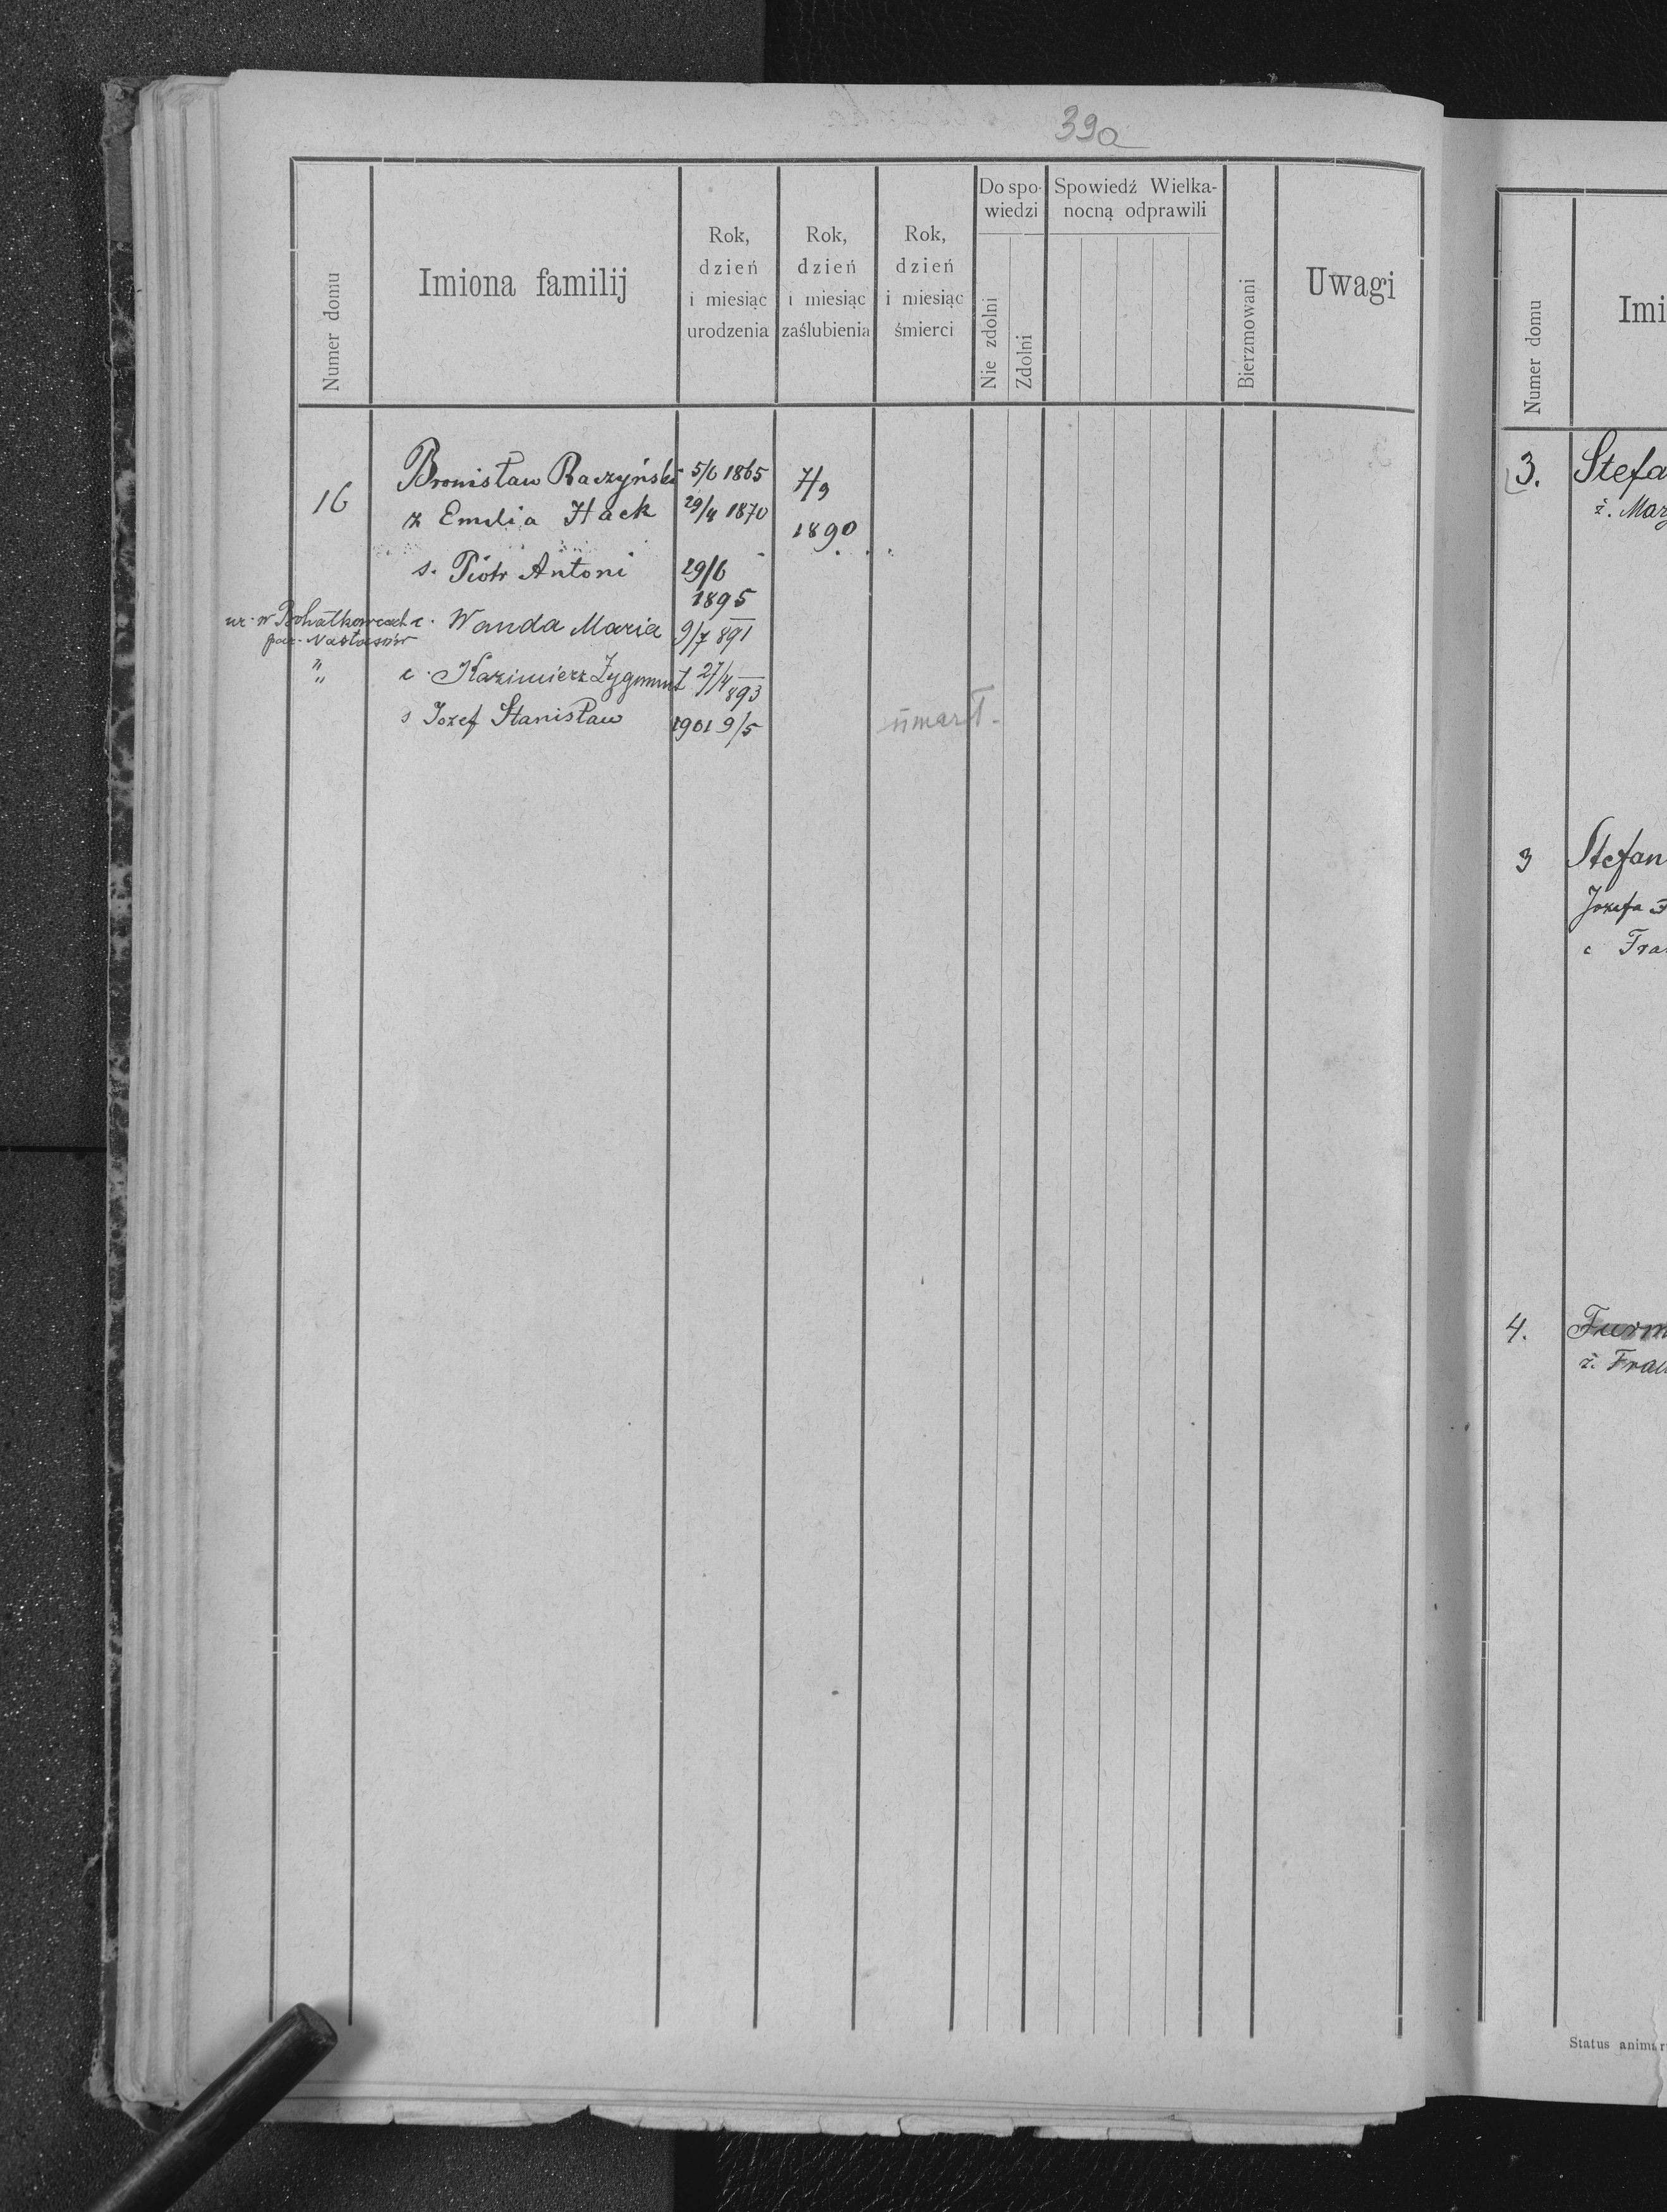 39a
Numer domu
Imiona familij
Rok,
dzień
i miesiąc
urodzenia
Rok,
dzień
i miesiąc
zaślubienia
Rok,
dzień
i miesiąc
śmierci
Do spo-
wiedzi
Nie zdolni
Zdolni
Spowiedź Wielka-
nocną odprawili
Bierzmowani
Uwagi
16
Bronisław Raczyński 5/6 1865 7/9
ż Emilia Hack 29/4 1870 1890
s. Piotr Antoni 29/6
1895
ur. w Bohatkowcach c. Wanda Maria 9/7 891
par. Nastasów
" c. Kazimierz Zygmunt 27/4 893
s Jozef Stanisław 1901 9/5 umarł.
Numer domu
Imi
3. Stefa
ż. Mary
3 Stefan
Jozefa
c Fra
4. Furm
ż. Fran
Status animar